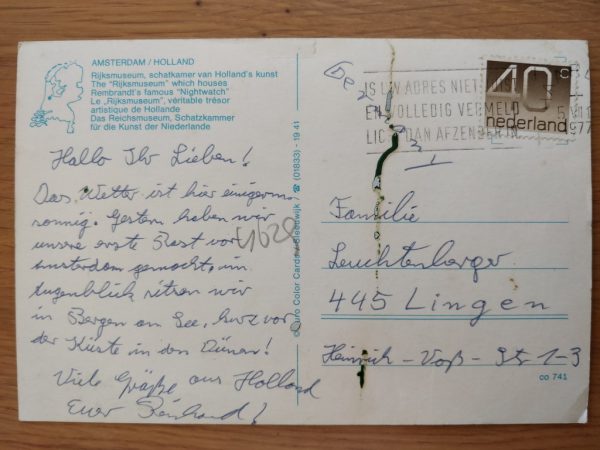 AMSTERDAM / HOLLAND
Rijksmuseum, schatkamer van Holland's kunst
The "Rijksmuseum" which houses
Rembrandt's famous "Nightwatch"
Le „Rijksmuseum", véritable trésor
artistique de Hollande
Das Reichsmuseum, Schatzkammer
für die Kunst der Niederlande
Hallo Ihr Lieben!
Das Wetter ist hier einigerm.
sonnig. Gestern haben wir
unsere erste Rast vor
Amsterdam gemacht, im
Augenblick sitzen wir
in Bergen am See, kurz vor
der Küste in den Dünen!
Viele Grüße aus Holland
Euer Reinhard!
4628
Color Cards / (01833) - 19 41
40c
nederland
IS UW ADRES NIET
EN VOLLEDIG VERMELD
LICHT DAN AFZENDER IN
1977
Familie
Leuchtenberger
445 Lingen
Heinrich-Voß-Str 1-3
co 741